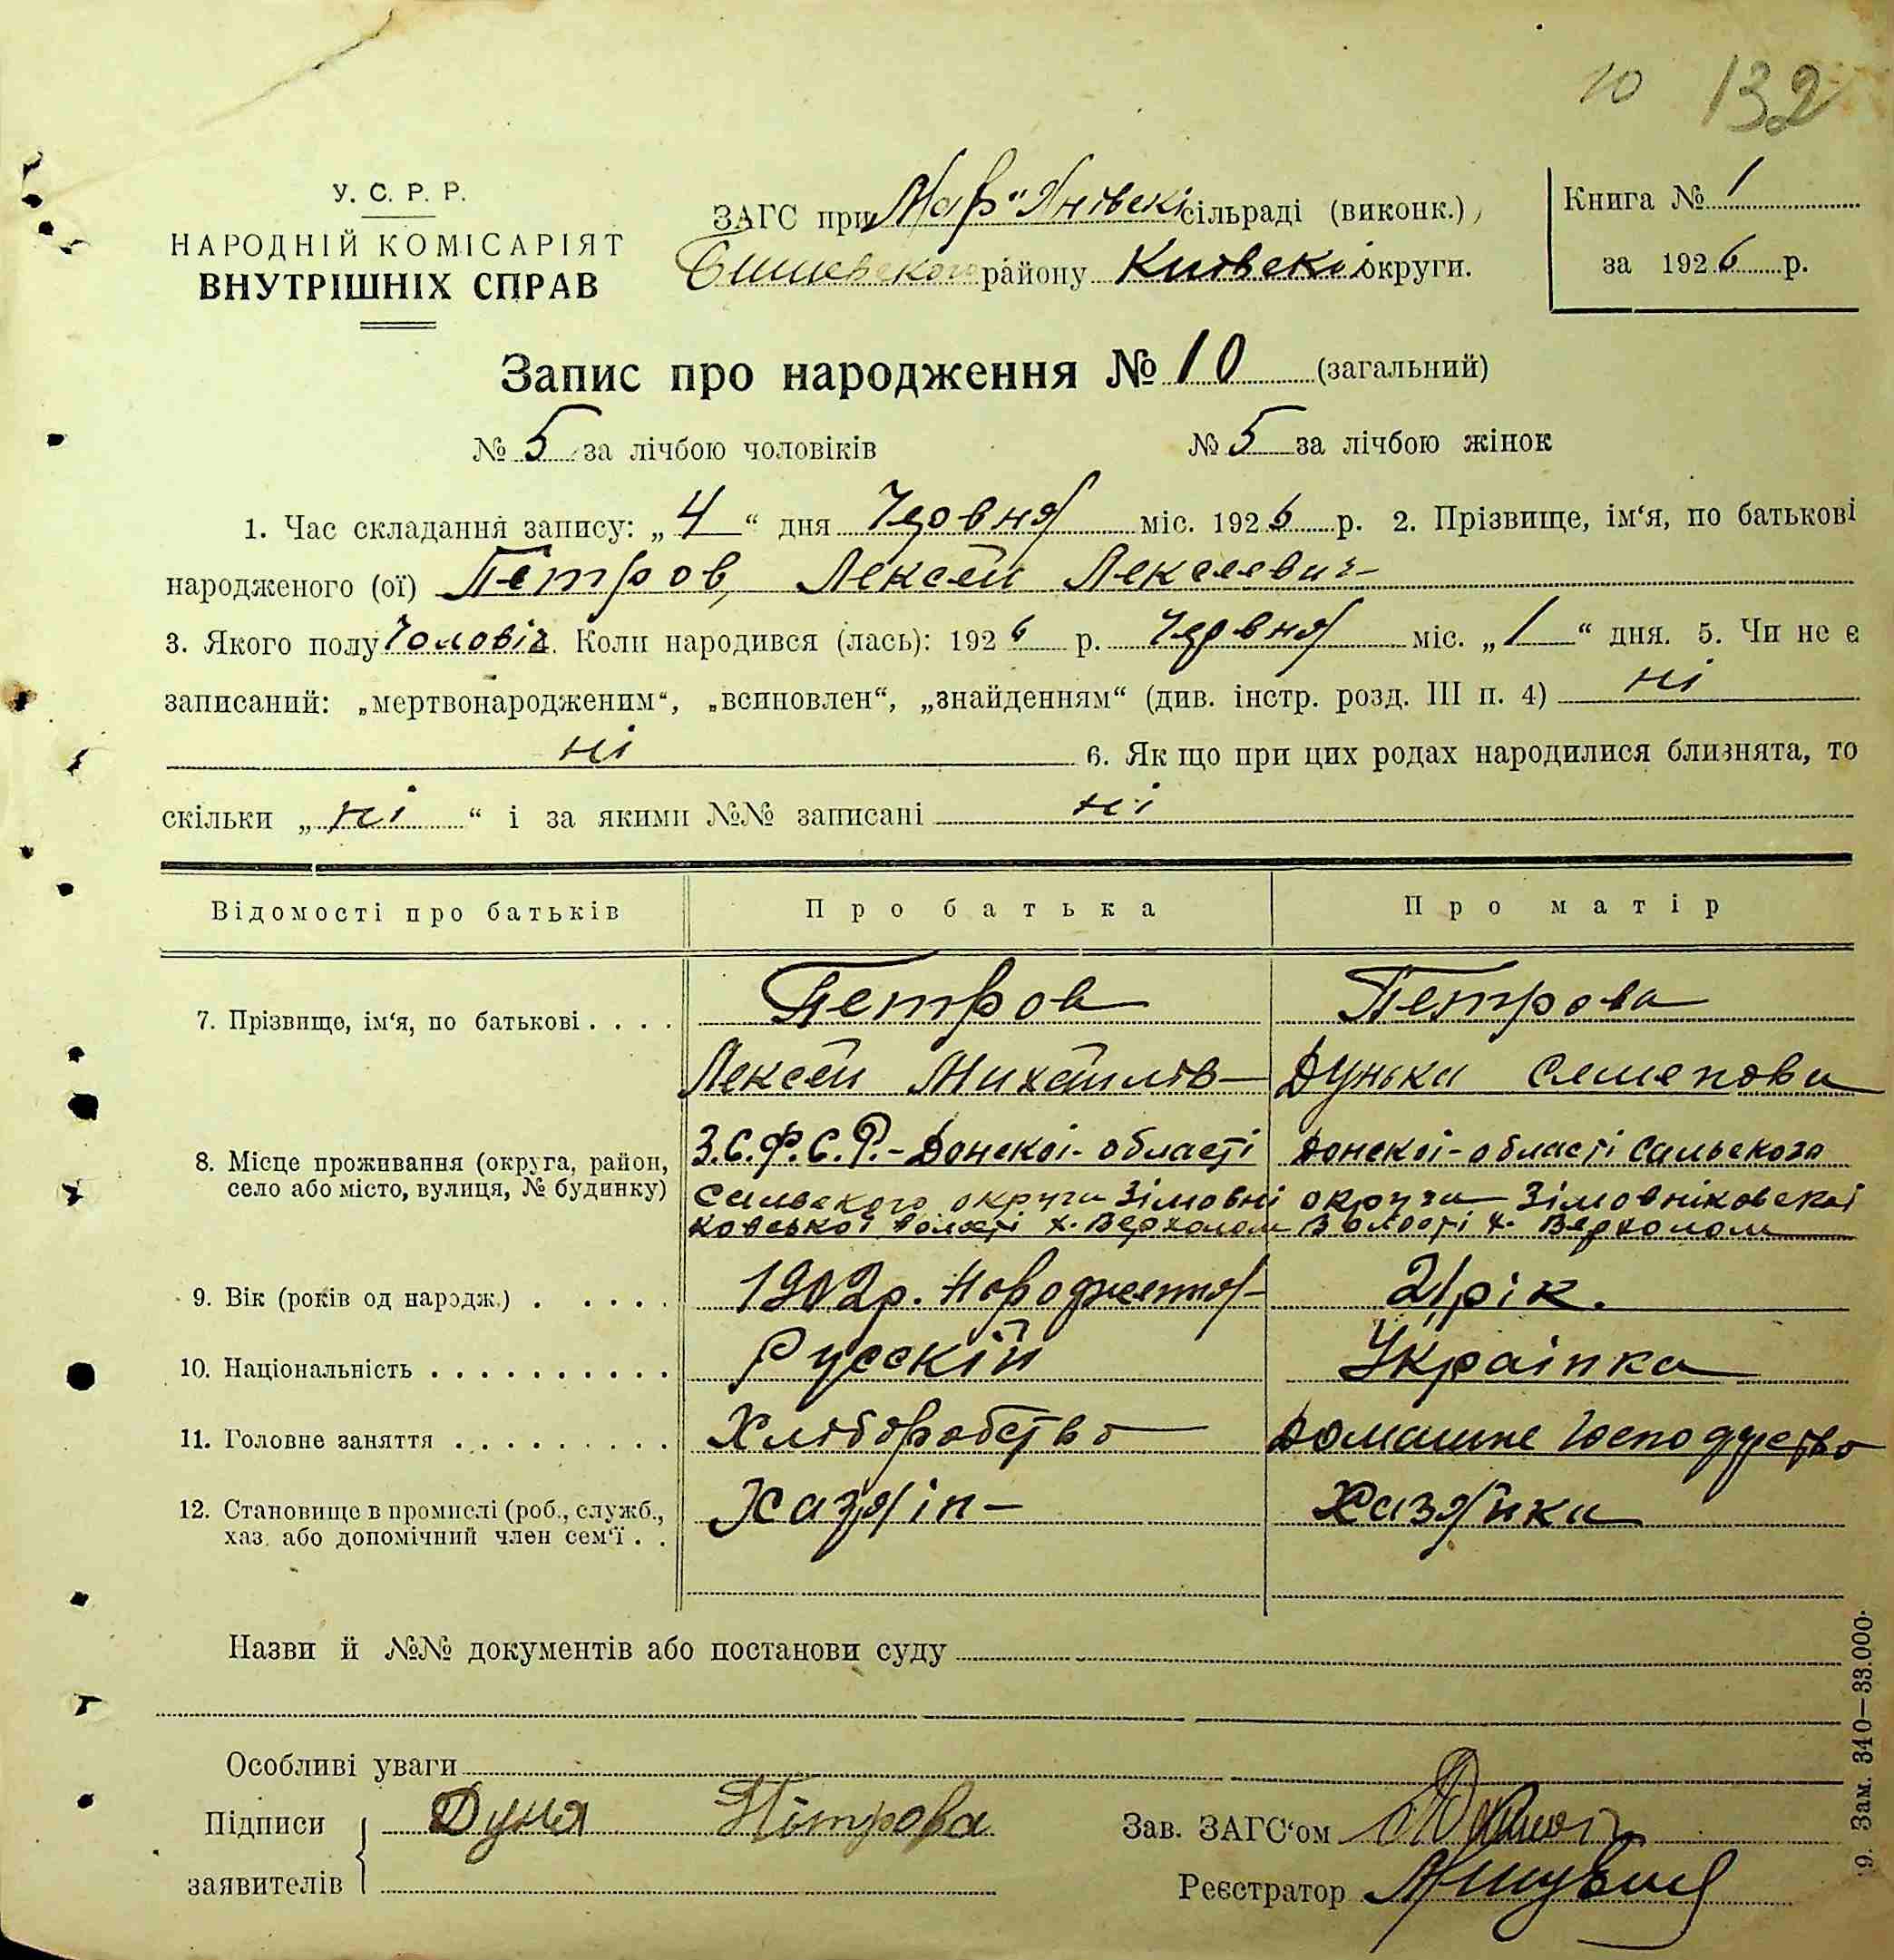 10 132
У. С. Р. Р.
НАРОДНІЙ КОМІСАРІЯТ
ВНУТРІШНІХ СПРАВ
ЗАГС при Мар"Янівскі сільраді (виконк.)
району Київскі округи.
Книга № 1
за 1926 р.
Запис про народження № 10 (загальний)
№ 5 за лічбою чоловіків № 5 за лічбою жінок
1. Час складання запису: „ 4 “ дня Червня міс. 1926 р. 2. Прізвище, ім‘я, по батькові
народженого (ої) Петров, Лексей Лексеевич
3. Якого полу Чоловіч. Коли народився (лась): 1926 р. Червня міс. „ 1 “ дня. 5. Чи не є
записаний: „мертвонародженим“, „всиновлен“, „знайденням“ (див. інстр. розд. III п. 4) ні
ні 6. Як що при цих родах народилися близнята, то
скільки „ ні “ і за якими №№ записані ні
Відомості про батьків Про батька Про матір
7. Прізвище, ім‘я, по батькові . . . . Петров Петрова
Лексей Михайлів Дунька Семенова
8. Місце проживання (округа, район, село або місто, вулиця, № будинку)
З.С.Ф.С.Р.-Донскоі-області Донскоі-області Сальского
Сальского округи Зімовні округи Зімовніковскоі
ковськоі волості х. Верхолом Волості х. Верхолом
9. Вік (років од народж.) . . . . . 1902р. Народження 21рік.
10. Національність . . . . . . . . . . Русскій Украінка
11. Головне заняття . . . . . . . . . Хліборобство Домашне Господрство
12. Становище в промислі (роб., служб., хаз. або допомічний член сем‘ї . . Хазяін Хазяйка
Назви й №№ документів або постанови суду
Особливі уваги
Підписи заявителів Дуня Петрова
Зав. ЗАГС‘ом
Реєстратор
9. Зам. 340—33.000.